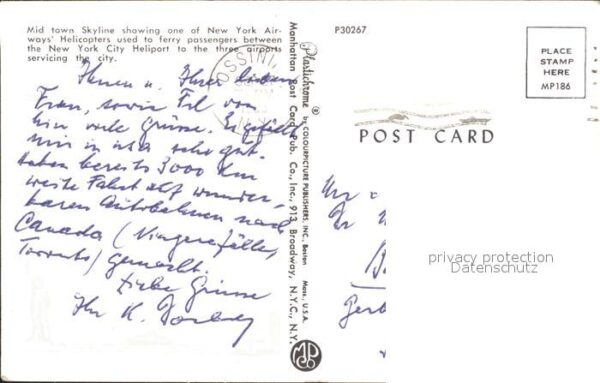 Mid town Skyline showing one of New York Air-
ways' Helicopters used to ferry passengers between
the New York City Heliport to the three airports
servicing the city.
Ihnen u. Ihrer lieben
Frau, sowie Frl. von
hier viele Grüsse. Es gefällt
mir in sehr gut.
haben bereits 3000 km
weite Fahrt auf wunder-
baren Autobahnen nach
Canada (Niagarafälle,
Toronto) gemacht.
Liebe Grüsse
Ihr K.
OSSINI
Plastichrome® by COLOURPICTURE PUBLISHERS, INC., Boston Mass., U.S.A.
Manhattan Post Card Pub. Co., Inc., 913 Broadway, N.Y.C., N.Y.
MPCo
P30267
PLACE
STAMP
HERE
MP186
POST CARD
privacy protection
Datenschutz